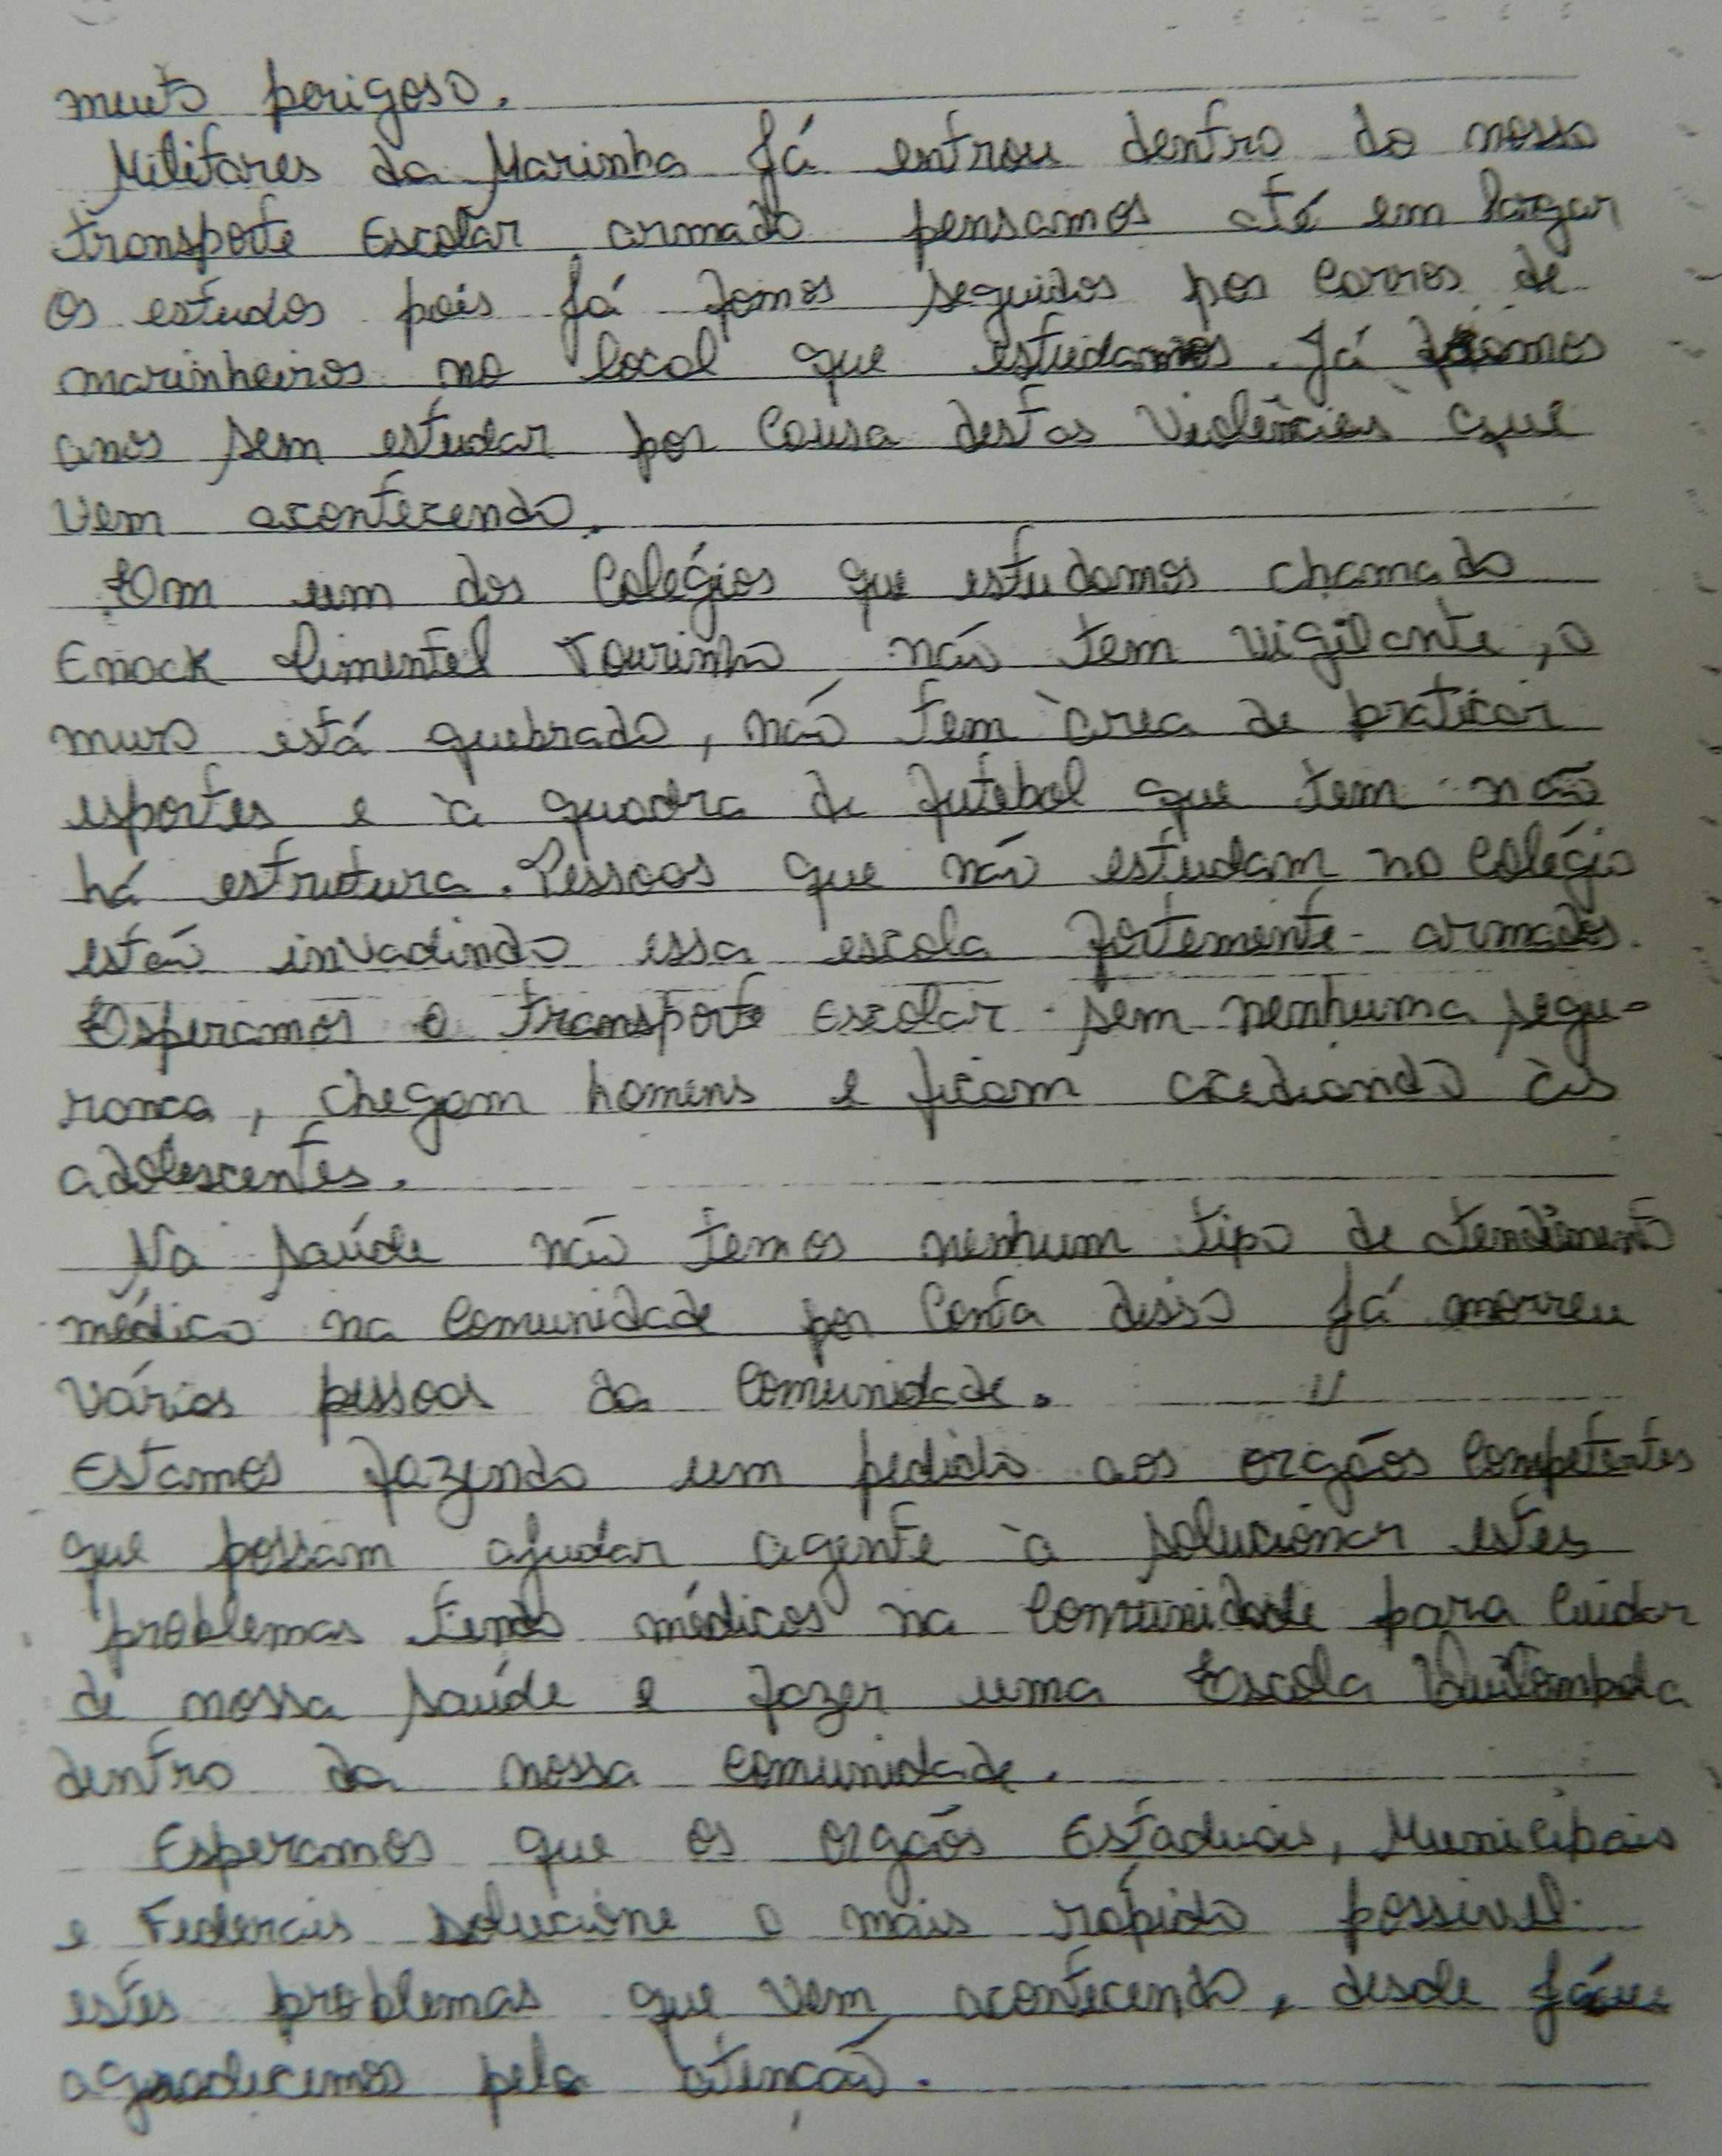 muito perigoso.
Militares da Marinha Já entrou dentro do nosso
transporte Escolar armado pensamos até em largar
os estudos pois Já fomos seguidos por carros de
marinheiros no local que estudamos. Já ficamos
anos sem estudar por causa destas Violências que
vem acontecendo.
Em um dos Colégios que estudamos chamado
Enock Pimentel Tourinho não tem vigilante, o
muro está quebrado, não tem àrea de praticar
esportes e à quadra de futebol que tem não
há estrutura. Pessoas que não estudam no Colégio
estão invadindo essa escola fortemente armados.
Esperamos o transporte Escolar sem nenhuma segu-
ranca, chegam homens e ficam acediando às
adolescentes.
Na saúde não temos nenhum tipo de atendimento
médico na Comunidade por Conta disso Já morreu
várias pessoas da Comunidade.
Estamos fazendo um pedido aos orgãos Competentes
que possam ajudar agente à solucionar estes
problemas tendo médicos na Comunidade para Cuidar
de nossa saúde e fazer uma Escola Quilombola
dentro da nossa comunidade.
Esperamos que os orgãos Estaduais, Municipais
e Federais solucione o mais rápido possivel
estes problemas que vem acontecendo, desde Já
agradecemos pela atenção.